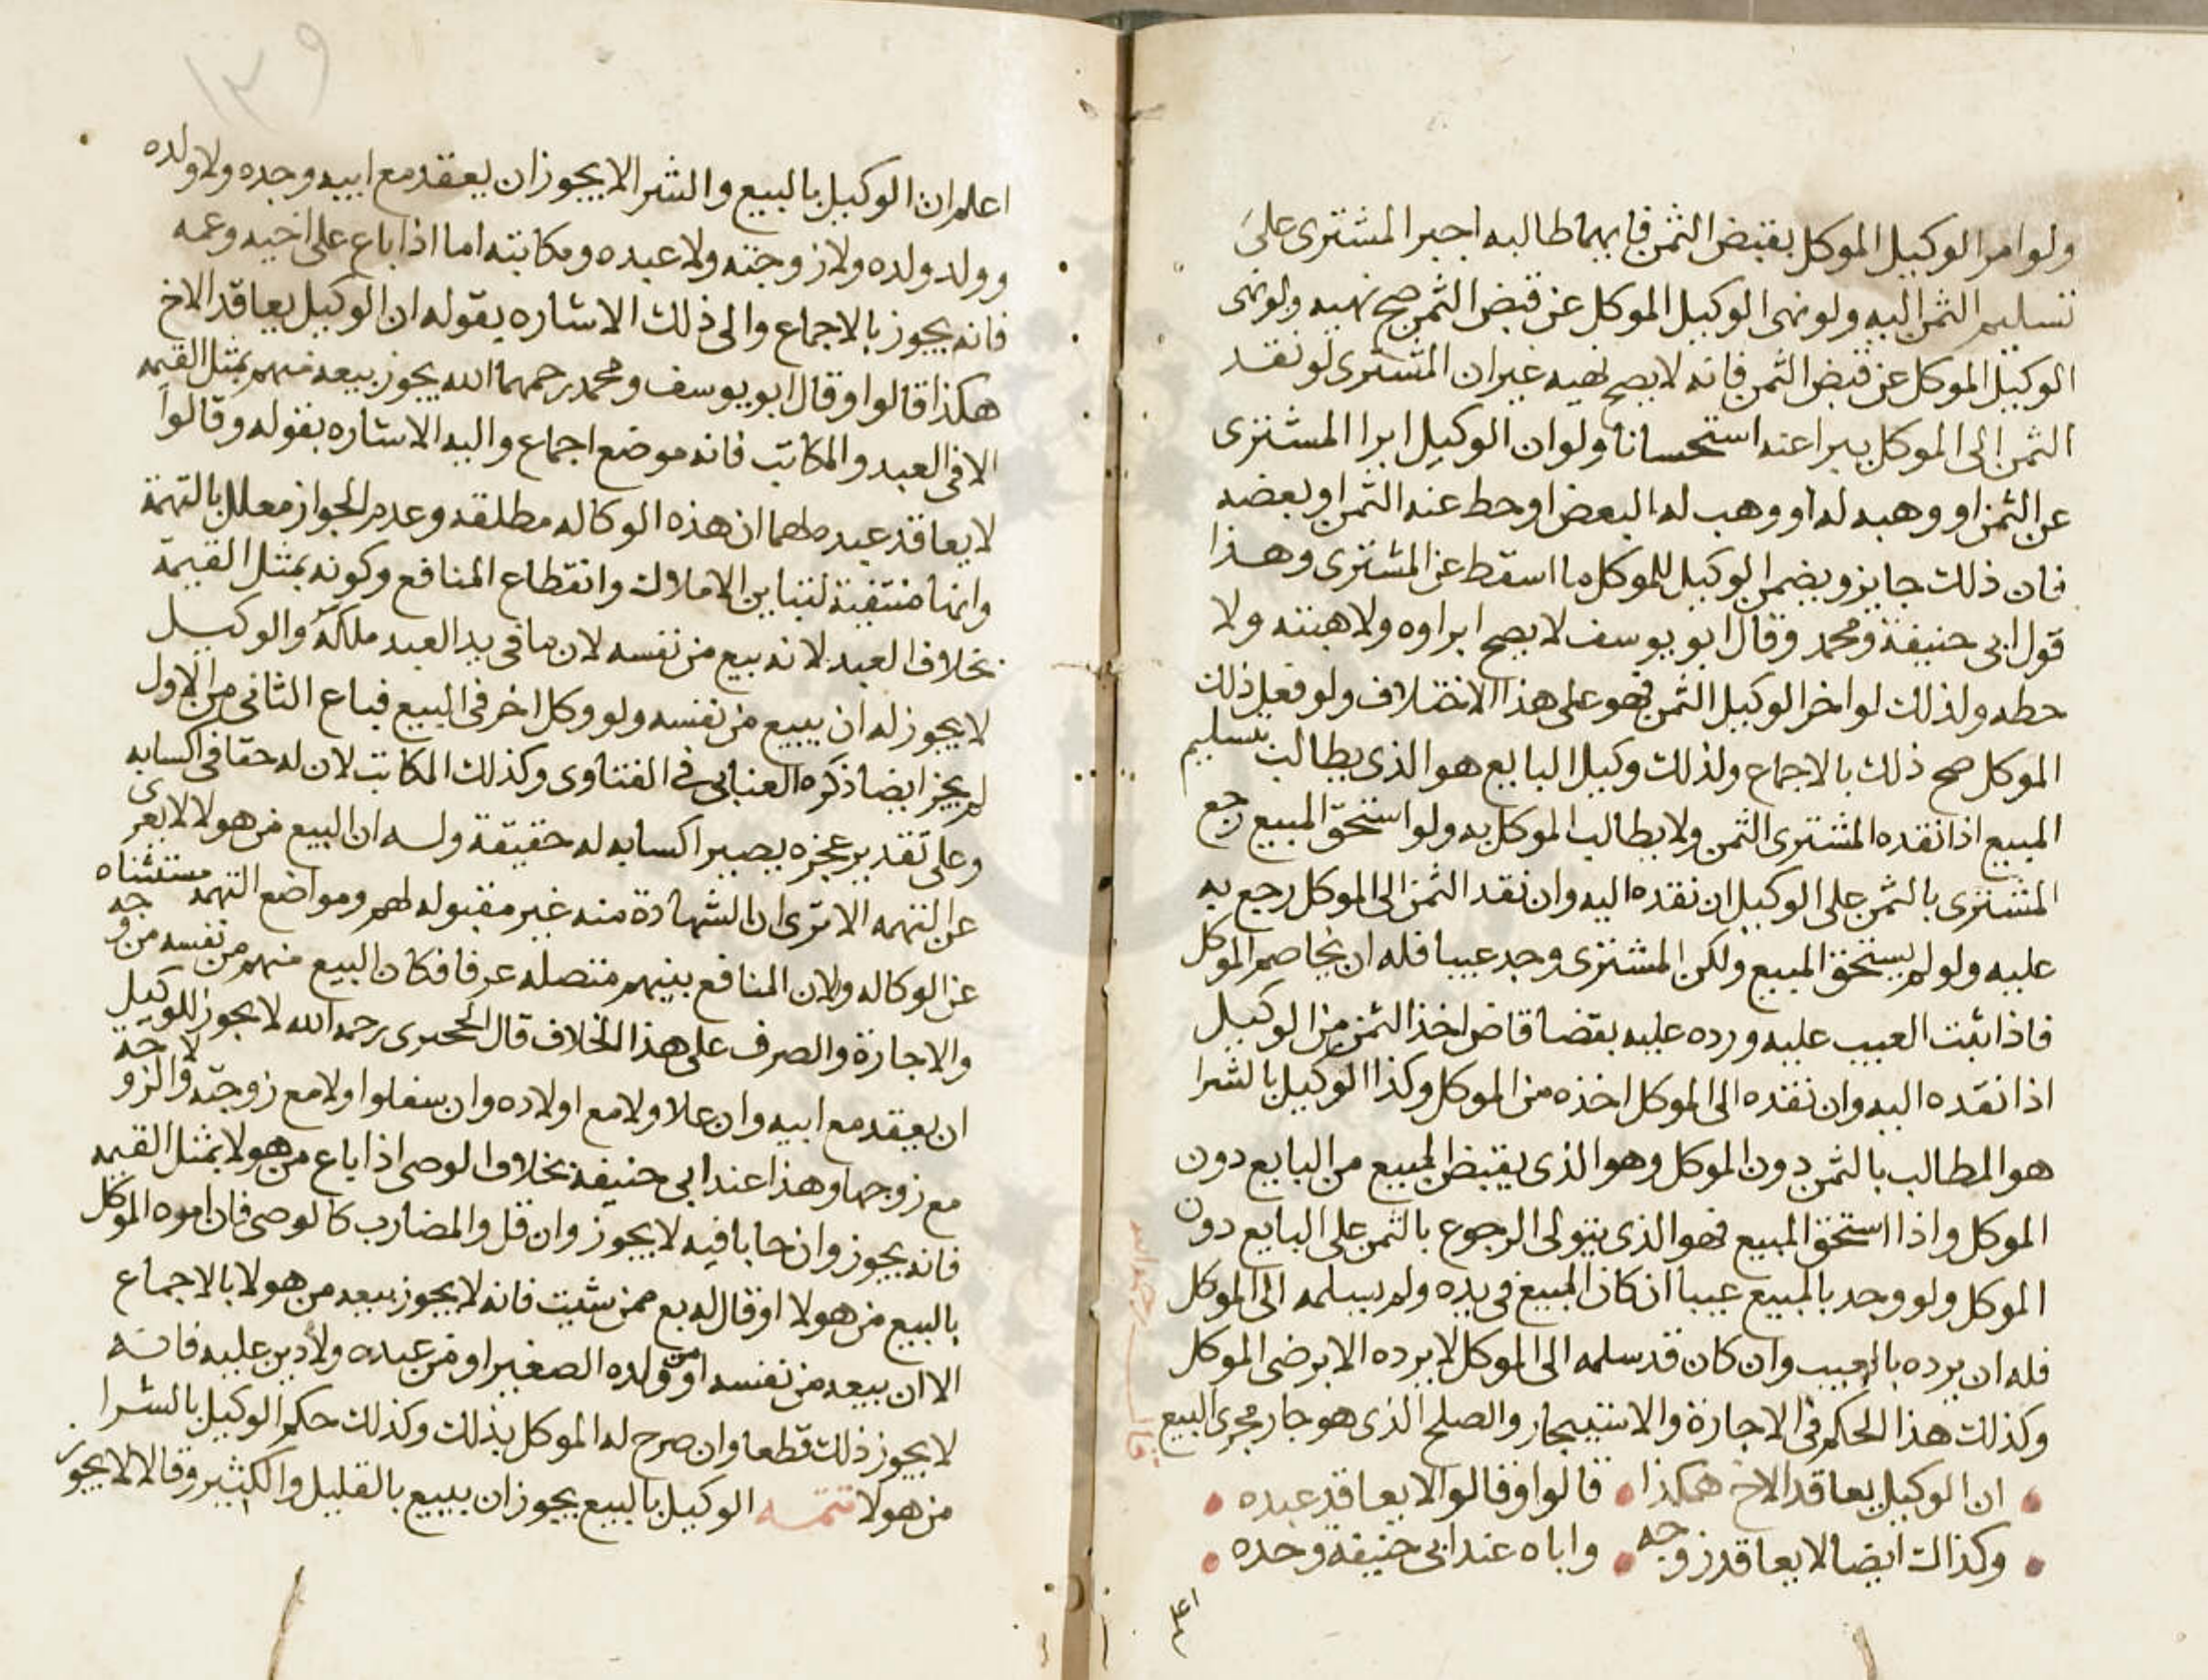 ولو امر الوكيل الموكل بقبض الثمن فايهما طالبه اجبر المشترى على
تسليم الثمن اليه ولو نهى الوكيل الموكل عن قبض الثمن صح نهيه ولو نهى
الوكيل الموكل عن قبض الثمن فانه لا يصح نهيه غير ان المشترى لو نقد
الثمن الى الموكل يبرا عنه استحسانا ولو ان الوكيل ابرا المشترى
عن الثمن او وهبه له او وهب له البعض او حط عنه الثمن او بعضه
فان ذلك جايز ويضمن الوكيل للموكل ما اسقط عن المشترى وهذا
قول ابى حنيفة ومحمد وقال ابو يوسف لا يصح ابراوه ولا هبته ولا
حطه ولذلك لو اخر الوكيل الثمن فهو على هذا الاختلاف ولو فعل ذلك
الموكل صح ذلك بالاجماع ولذلك وكيل البايع هو الذى يطالب بتسليم
المبيع اذا نقده المشترى الثمن ولا يطالب الموكل به ولو استحق المبيع رجع
المشترى بالثمن على الوكيل ان نقده اليه وان نقد الثمن الى الموكل رجع به
عليه ولو لم يستحق المبيع ولكن المشترى وجد عيبا فله ان يخاصم الموكل
فاذا ثبت العيب عليه ورده عليه بقضا قاض اخذ الثمن من الوكيل
اذا نقده اليه وان نقده الى الموكل اخذه من الموكل وكذا الوكيل بالشرا
هو المطالب بالثمن دون الموكل وهو الذى يقبض المبيع من البايع دون
الموكل واذا استحق المبيع فهو الذى يتولى الرجوع بالثمن على البايع دون
الموكل ولو وجد بالمبيع عيبا ان كان المبيع فى يده ولم يسلمه الى الموكل
فله ان يرده بالعيب وان كان قد سلمه الى الموكل لا يرده الا برضى الموكل
وكذلك هذا الحكم فى الاجارة والاستيجار والصلح الذى هو جار مجرى البيع
ان الوكيل يعاقد الاخ هكذا قالوا وقالوا لا يعاقد عبده
وكذاك ايضا لا يعاقد زوجه واباه عند ابى حنيفه وحده
اعلم
١٣٩
اعلم ان الوكيل بالبيع والشرا لا يجوز ان يعقد مع ابيه وجده ولا ولده
وولد ولده ولا زوجته ولا عبده ومكاتبته اما اذا باع على اخيه وعمه
فانه يجوز بالاجماع والى ذلك الاشاره بقوله ان الوكيل يعاقد الاخ
هكذا قالوا وقال ابو يوسف ومحمد رحمهما الله يجوز بيعه منهم بمثل القيمه
الا فى العبد والمكاتب فانه موضع اجماع واليه الاشاره بقوله وقالوا
لا يعاقد عبده لهما ان هذه الوكاله مطلقه وعدم الجواز معلل بالتهمة
وانها منتفية لتباين الاملاك وانقطاع المنافع وكونه بمثل القيمة
بخلاف العبد لانه بيع من نفسه لان ما فى يد العبد ملكه والوكيل
لا يجوز له ان يبيع من نفسه ولو وكل اخر فى البيع فباع الثانى من الاول
لم يجز ايضا ذكره العتابى فى الفتاوى وكذلك المكاتب لان له حقا فى اكسابه
وعلى تقدير عجزه يصير اكسابه له حقيقة وله ان البيع من هولا لا يعرى
عن التهمه الا ترى ان الشهادة منه غير مقبوله لهم ومواضع التهمه مستثناه
عن الوكاله ولان المنافع بينهم متصله عرفا فكان البيع منهم من نفسه من وجه
والاجارة والصرف على هذا الخلاف قال رحمه الله لا يجوز للوكيل
ان يعقد مع ابيه وان علا ولا مع اولاده وان سفلوا ولا مع زوجته ولا الزوجة
مع زوجها وهذا عند ابى حنيفه بخلاف الوصى اذا باع من هولا بمثل القيمه
فانه يجوز وان حابا فيه لا يجوز وان قل والمضارب كالوصى فان امره الموكل
بالبيع من هولا او قال له بع ممن شيت فانه لا يجوز بيعه من هولا بالاجماع
الا ان بيعه من نفسه او من ولده الصغير او من عبده ولا دين عليه فانه
لا يجوز ذلك قطعا وان صرح له الموكل بذلك وكذلك حكم الوكيل بالشرا
من هولا تتمه الوكيل بالبيع يجوز ان يبيع بالقليل والكثير وقالا لا يجوز